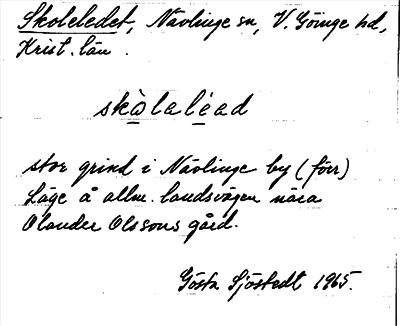 Skoleledet, Nävlinge sn, V. Göinge hd,
Krist. län.
skòlaléad
stor grind i Nävlinge by (förr)
Läge å allm. landsvägen nära
Olander Olssons gård.
Gösta Sjöstedt 1965.